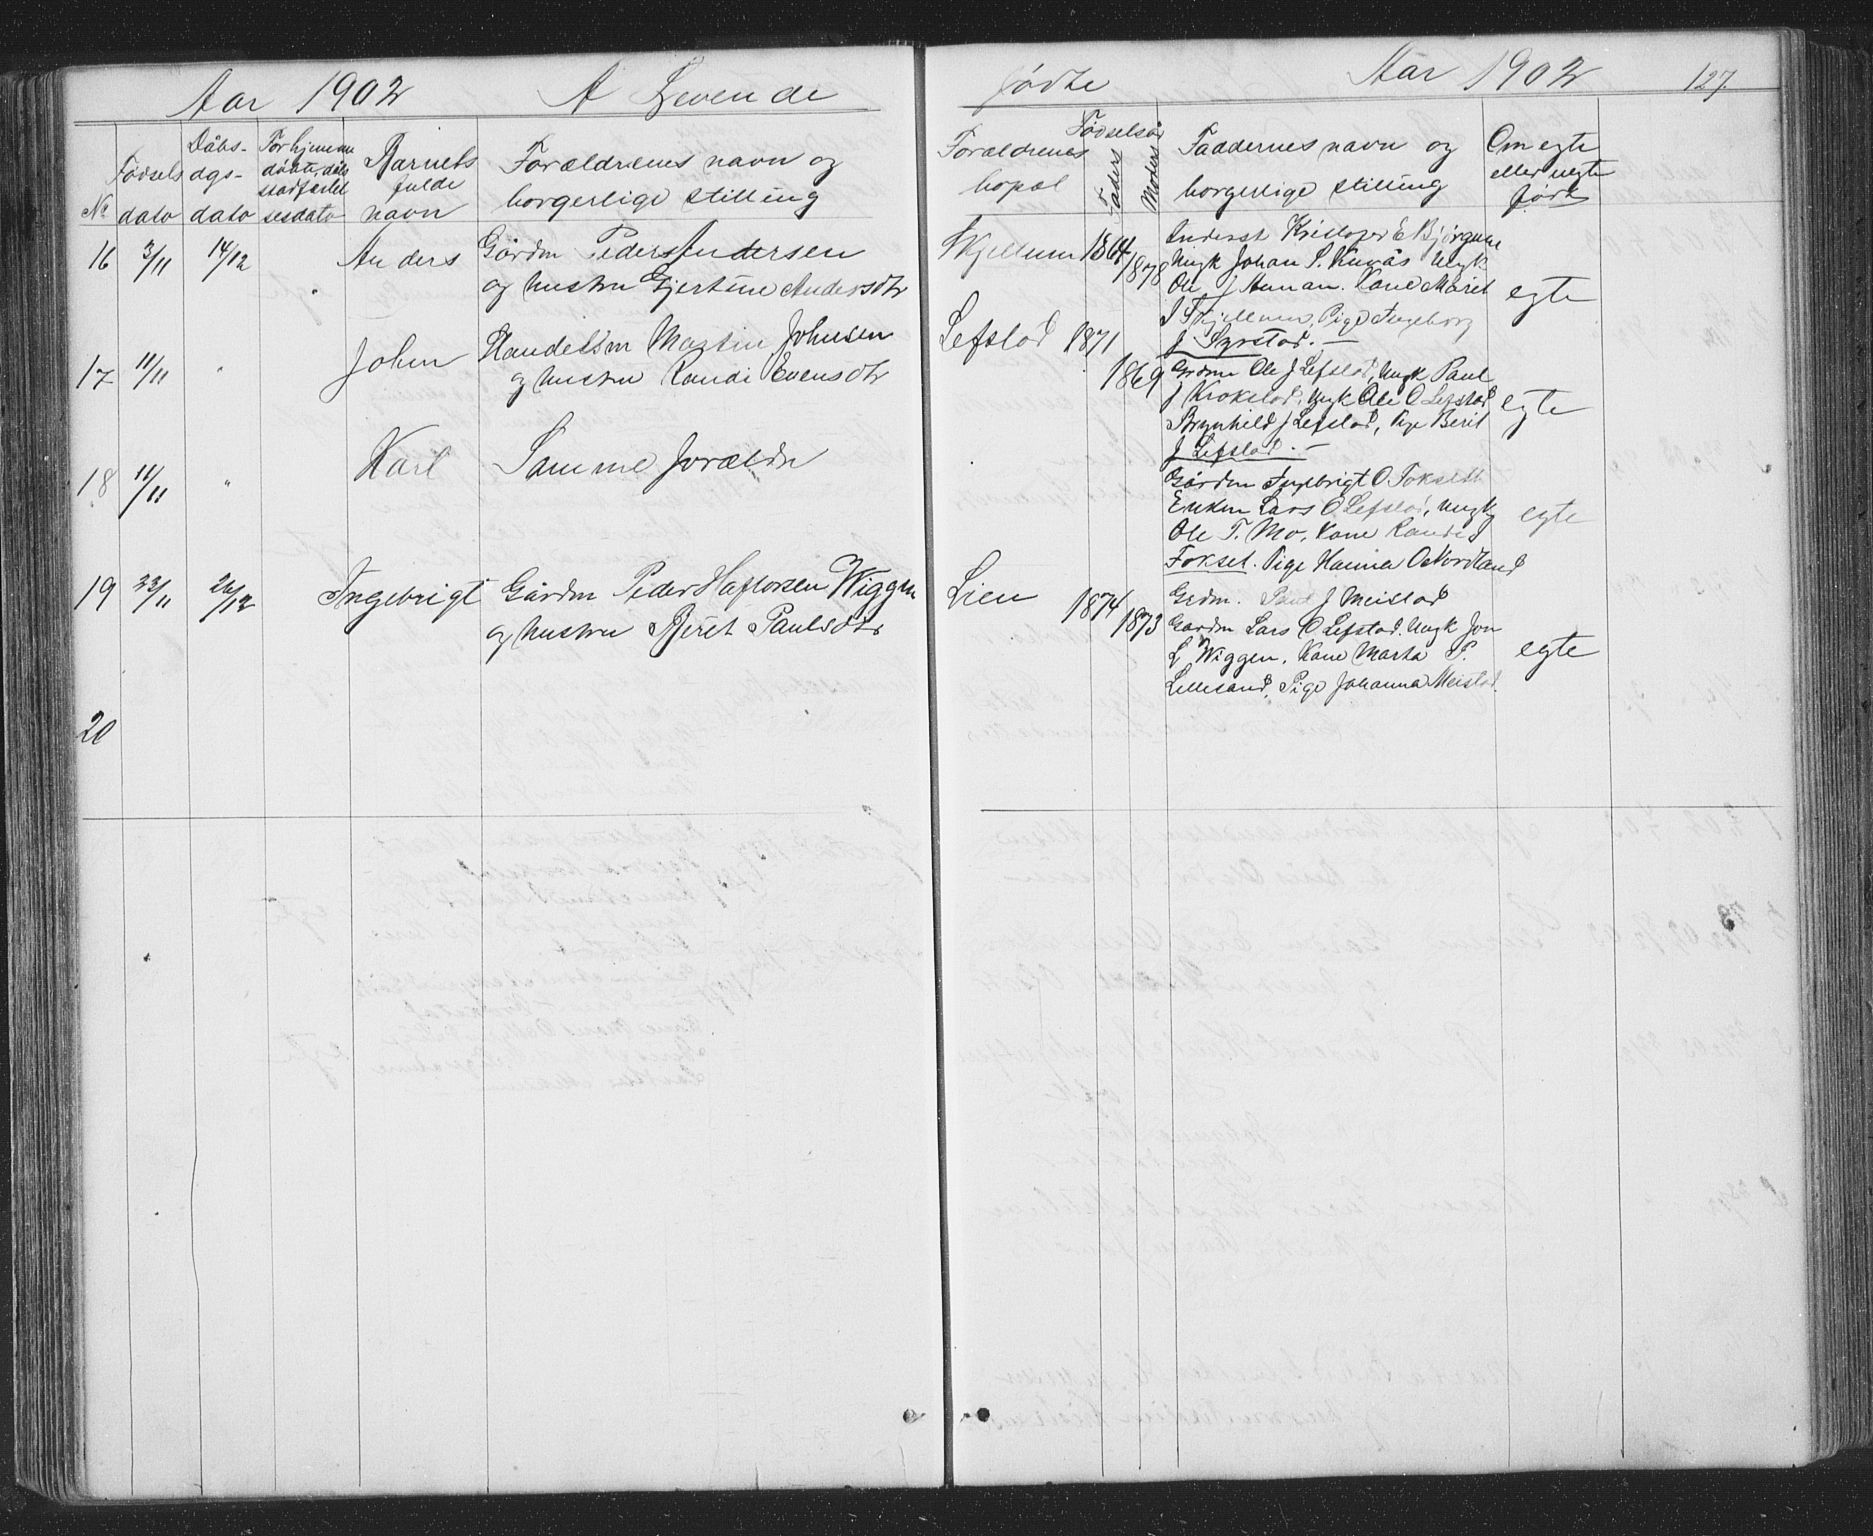 Aar 1902 A Levende
fødte Aar 1902 127.
No
Fødsels
dato
Dåbs-
dgs-
dato
For hjemme
døbte, dåb
stadfæstel
sesdato
Barnets
fulde
navn
Forældrenes navn og
borgerlige stilling
Forældrenes
bopæl
Fødselsår
Faders
Moders
Faddernes navn og
borgerlige stilling
Om egte
eller uegte
født
16 3/11 14/12 Anders Gårdm Peder Andersen
og hustru Gjertine Andersdtr
Skjellum 1864
1878
Inderst Kristofer E Bjørgum
Ungk Johan P. Kuvås Ungk
Ole J Aunan. Kone Marit
I Skjellum, Pige Ingeborg
J Syrstad. —
egte
17 11/11 " John Handelsm Martin Johnsen
og hustru Randi Evensdtr
Lefstad 1871
1869
Grdm Ole J Lefstad, Ungk Paul
J Krokstad, Ungk Ole O Lefstad
Brynhild J Lefstad, Pige Berit
J Lefstad. —
egte
18 11/11 " Karl Samme foræld​r
Gårdm Ingebrigt O Fokseth
Enkm Lars O Lefstad, Ungk
Ole T. Mo, Kone Randi
Fokset. Pige Hanna O Nordtand
egte
19 23/11 26/12 Ingebrigt Gårdm Peder Haftorsen Wiggen
og hustru Beret Paulsdtr
Lien 1874
1873
Grdm. Paul J Meistad
Gårdm Lars O Lefstad. Ungk Jon
L Wiggen, Kone Marta P.
Lillesand, Pige Johanna Meistad.
egte
20